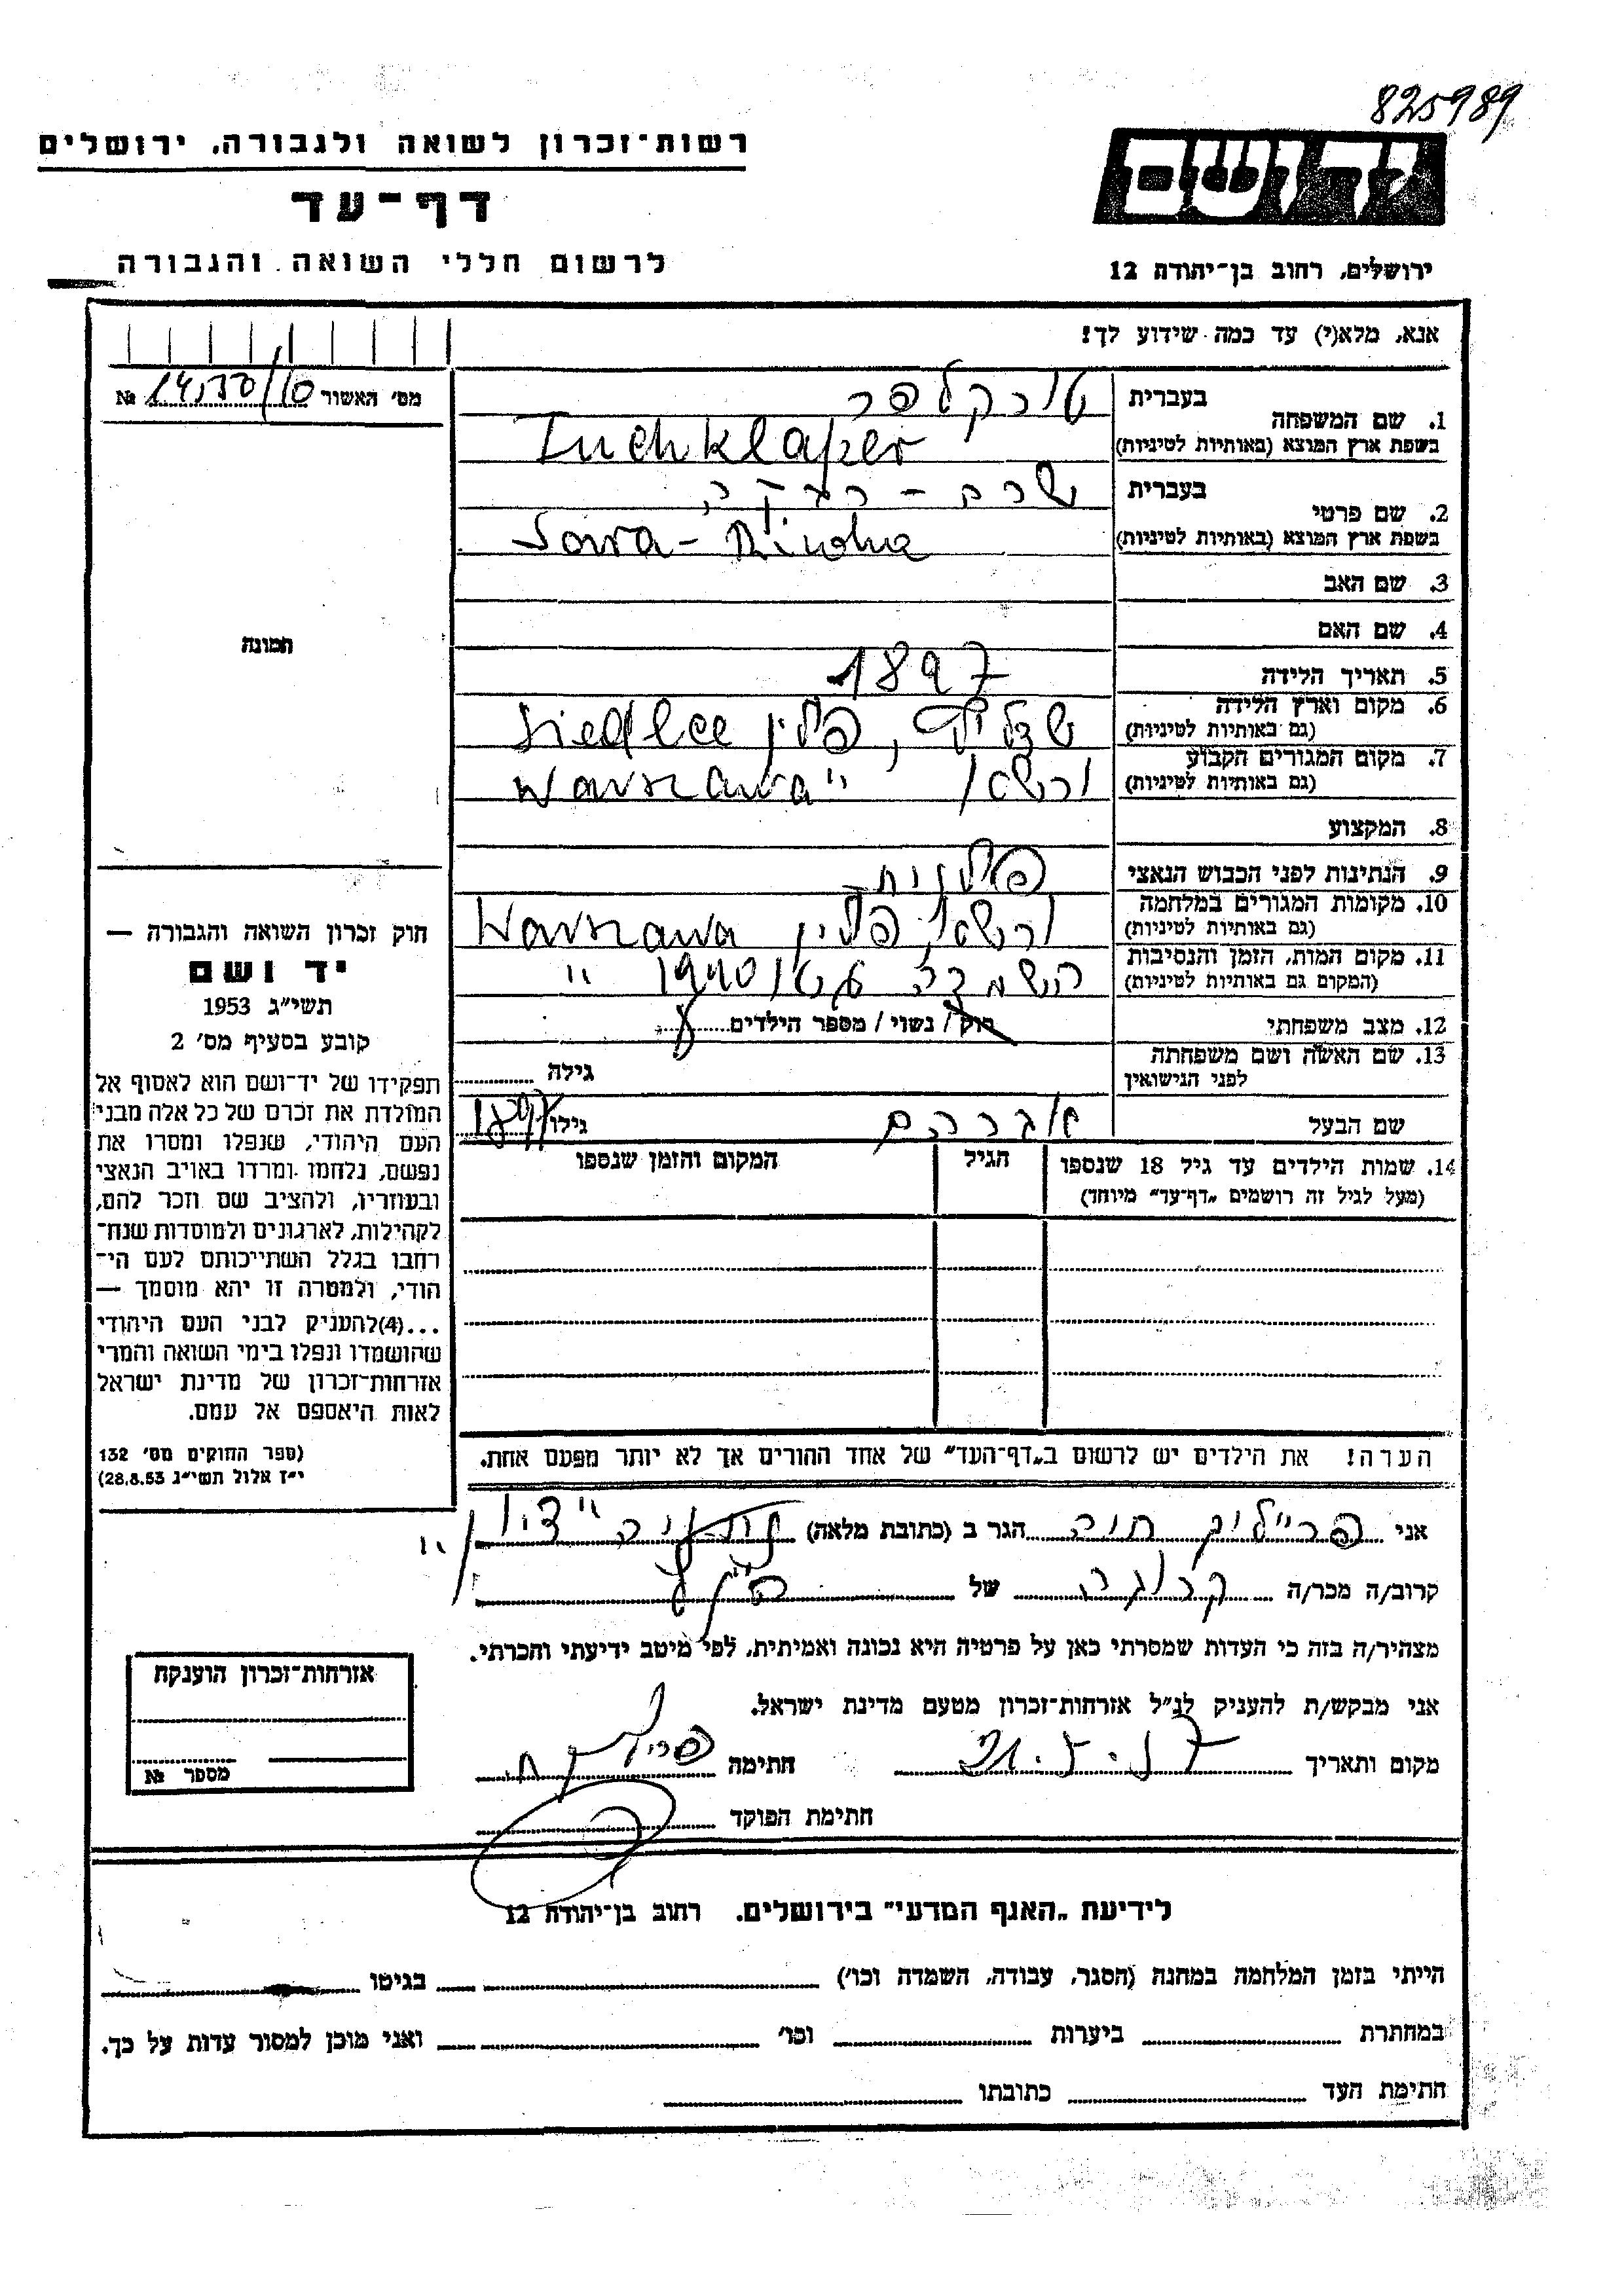 825989
רשות־זכרון לשואה ולגבורה, ירושלים
דף־עד
לרשום חללי השואה והגבורה
יד ושם
ירושלים, רחוב בן־יהודה 12
אנא, מלא(י) עד כמה שידוע לך!
מס׳ האשור №
1. שם המשפחה
בעברית טוכקלפר
בשפת ארץ המוצא (באותיות לטיניות) Tuchklaper
2. שם פרטי
בעברית שרה - רבקה
בשפת ארץ המוצא (באותיות לטיניות)
3. שם האב
4. שם האם
5. תאריך הלידה 1897
6. מקום וארץ הלידה פולין Siedlce
(גם באותיות לטיניות)
7. מקום המגורים הקבוע Warszawa
(גם באותיות לטיניות)
8. המקצוע
9. הנתינות לפני הכבוש הנאצי פולנית
10. מקומות המגורים במלחמה פולין Warszawa
(גם באותיות לטיניות)
11. מקום המות, הזמן והנסיבות השמדה גטו 1940
(המקום גם באותיות לטיניות)
12. מצב משפחתי רוק / נשוי / מספר הילדים
13. שם האשה ושם משפחתה
לפני הנישואין גילה
שם הבעל אברהם גילו
14. שמות הילדים עד גיל 18 שנספו הגיל המקום והזמן שנספו
(מעל לגיל זה רושמים „דף־עד״ מיוחד)
הערה! את הילדים יש לרשום ב„דף־העד״ של אחד ההורים אך לא יותר מפעם אחת.
תמונה
חוק זכרון השואה והגבורה —
יד ושם
תשי״ג 1953
קובע בסעיף מס׳ 2
תפקידו של יד־ושם הוא לאסוף אל
המולדת את זכרם של כל אלה מבני
העם היהודי, שנפלו ומסרו את
נפשם, נלחמו ומרדו באויב הנאצי
ובעוזריו, ולהציב שם וזכר להם,
לקהילות, לארגונים ולמוסדות שנח־
רחבו בגלל השתייכותם לעם הי־
הודי, ולמטרה זו יהא מוסמך —
...(4)להעניק לבני העם היהודי
שהושמדו ונפלו בימי השואה והמרי
אזרחות־זכרון של מדינת ישראל
לאות היאספם אל עמם.
(ספר החוקים מס׳ 132
י״ז אלול תשי״ג 28.8.53)
אני חיה הגר ב (כתובת מלאה)
קרוב/ה מכר/ה קרובה של
מצהיר/ה בזה כי העדות שמסרתי כאן על פרטיה היא נכונה ואמיתית, לפי מיטב ידיעתי והכרתי.
אני מבקש/ת להעניק לנ״ל אזרחות־זכרון מטעם מדינת ישראל.
מקום ותאריך חתימה
חתימת הפוקד
אזרחות־זכרון הוענקה
מספר №
לידיעת „האגף המדעי״ בירושלים. רחוב בן־יהודה 12
הייתי בזמן המלחמה במחנה (הסגר, עבודה, השמדה וכו׳) בגיטו
במחתרת ביערות וכו׳ ואני מוכן למסור עדות על כך.
חתימת העד כתובתו